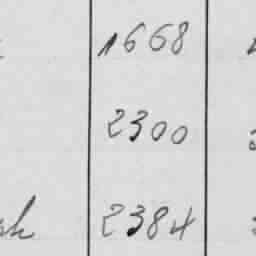 1668
2300
2384